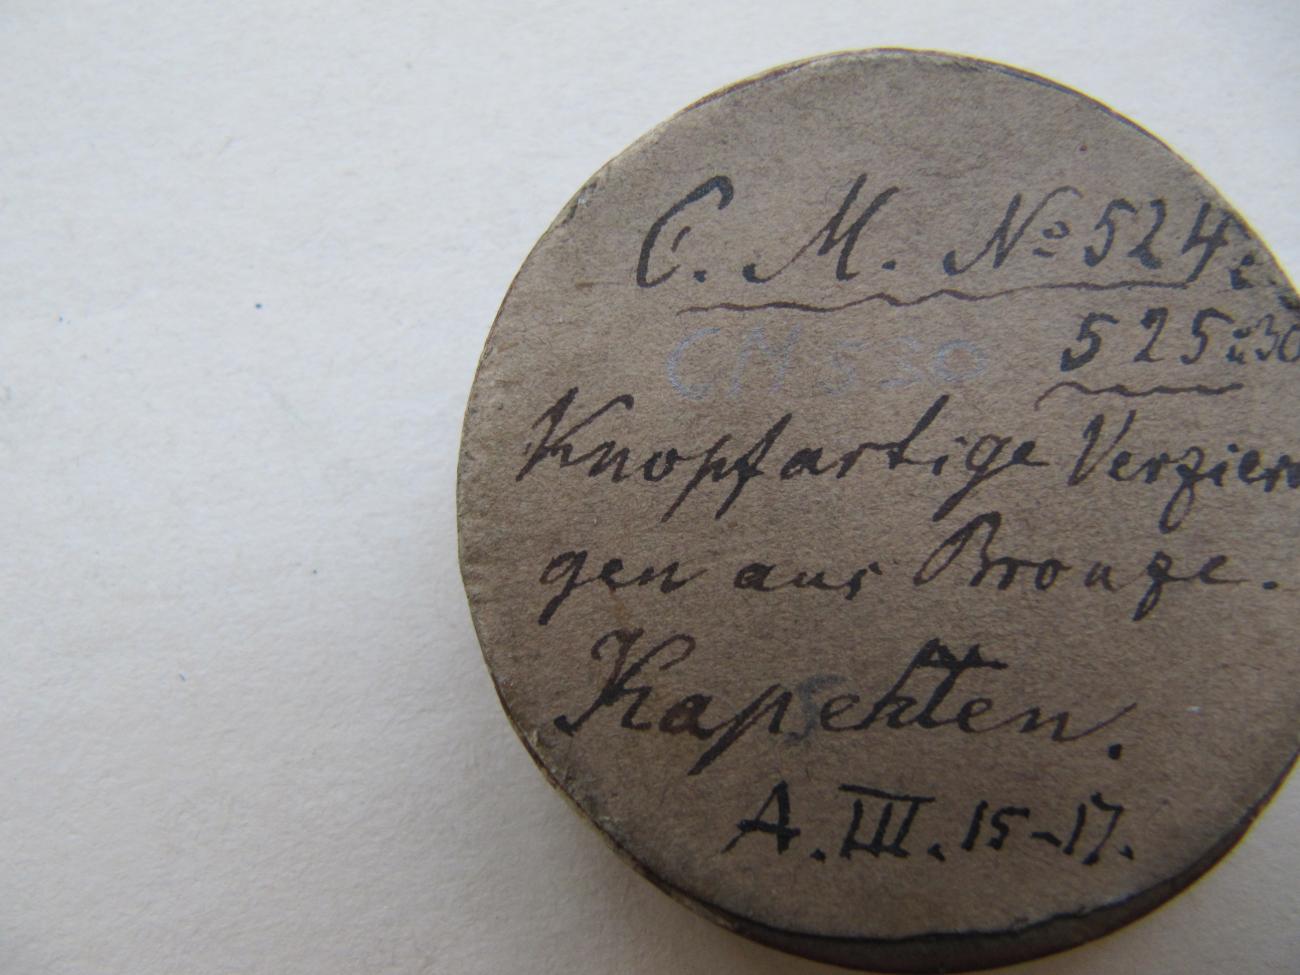 C. M. No 524
525 u. 30
CM 530
Knopfartige Verzier
gen aus Bronze.
Kapsehten.
A. III. 15-17.